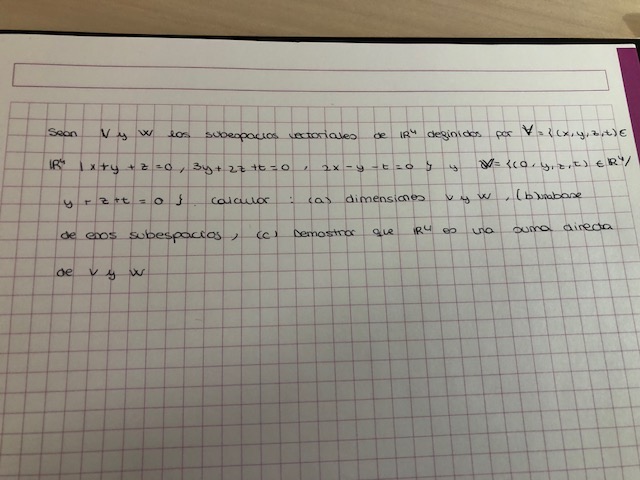 Sean V y W los subespacios vectoriales de IR⁴ definidos por V = {(x,y,z,t) ∈
IR⁴ | x+y+z=0, 3y+2z+t=0, 2x-y-t=0 } y W = {(0,y,z,t) ∈ IR⁴/
y + z + t = 0 } calcular : (a) dimensiones V y W, (b) una base
de esos subespacios, (c) Demostrar que IR⁴ es una suma directa
de V y W